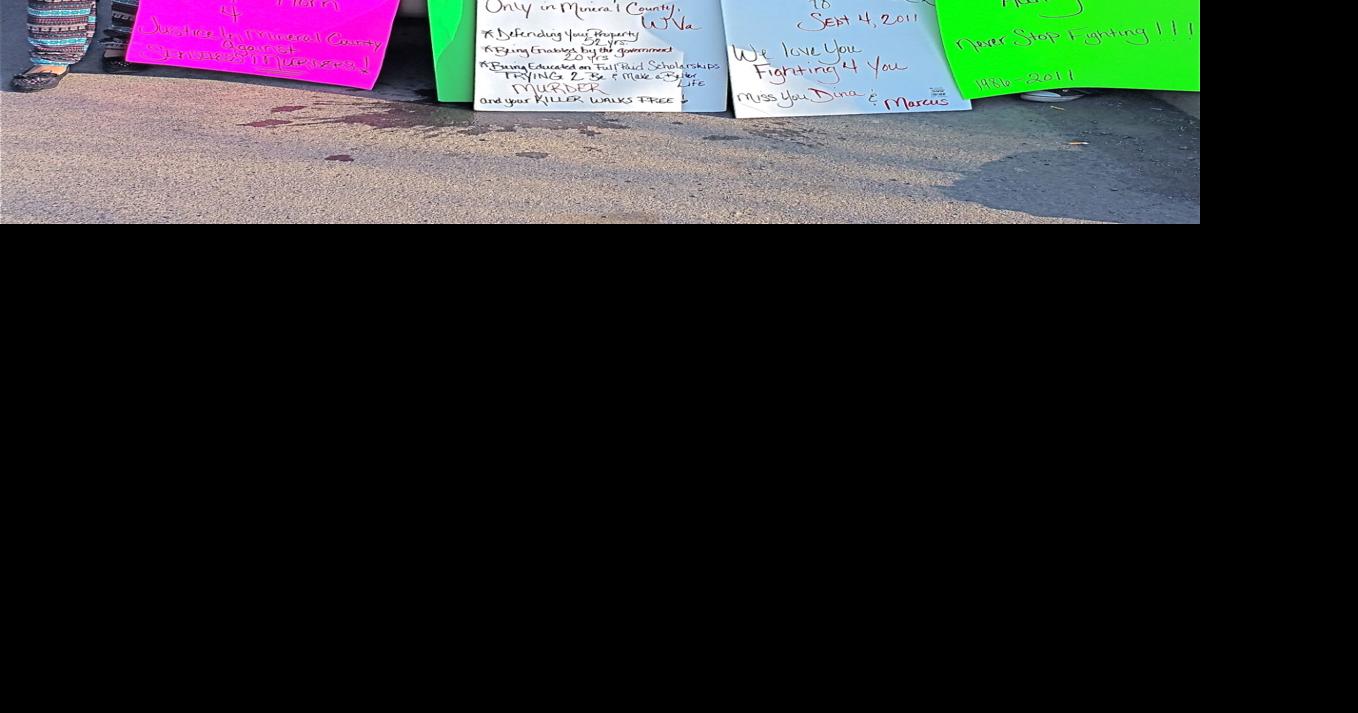 4
Justice In Mineral County
against
SENSELESS MURDERS!
Only in Mineral County,
WVa
* Defending Your Property
52 yrs.
* Being Enabled by the government
20 yrs
* Being Educated on Full Paid Scholarships
TRYING 2 Be & Make a Better
LIFE
MURDER
and your KILLER WALKS FREE!
Sept 4, 2011
We love You
Fighting 4 You
Miss You Dina &
Marcus
Never Stop Fighting!!!
1986-2011